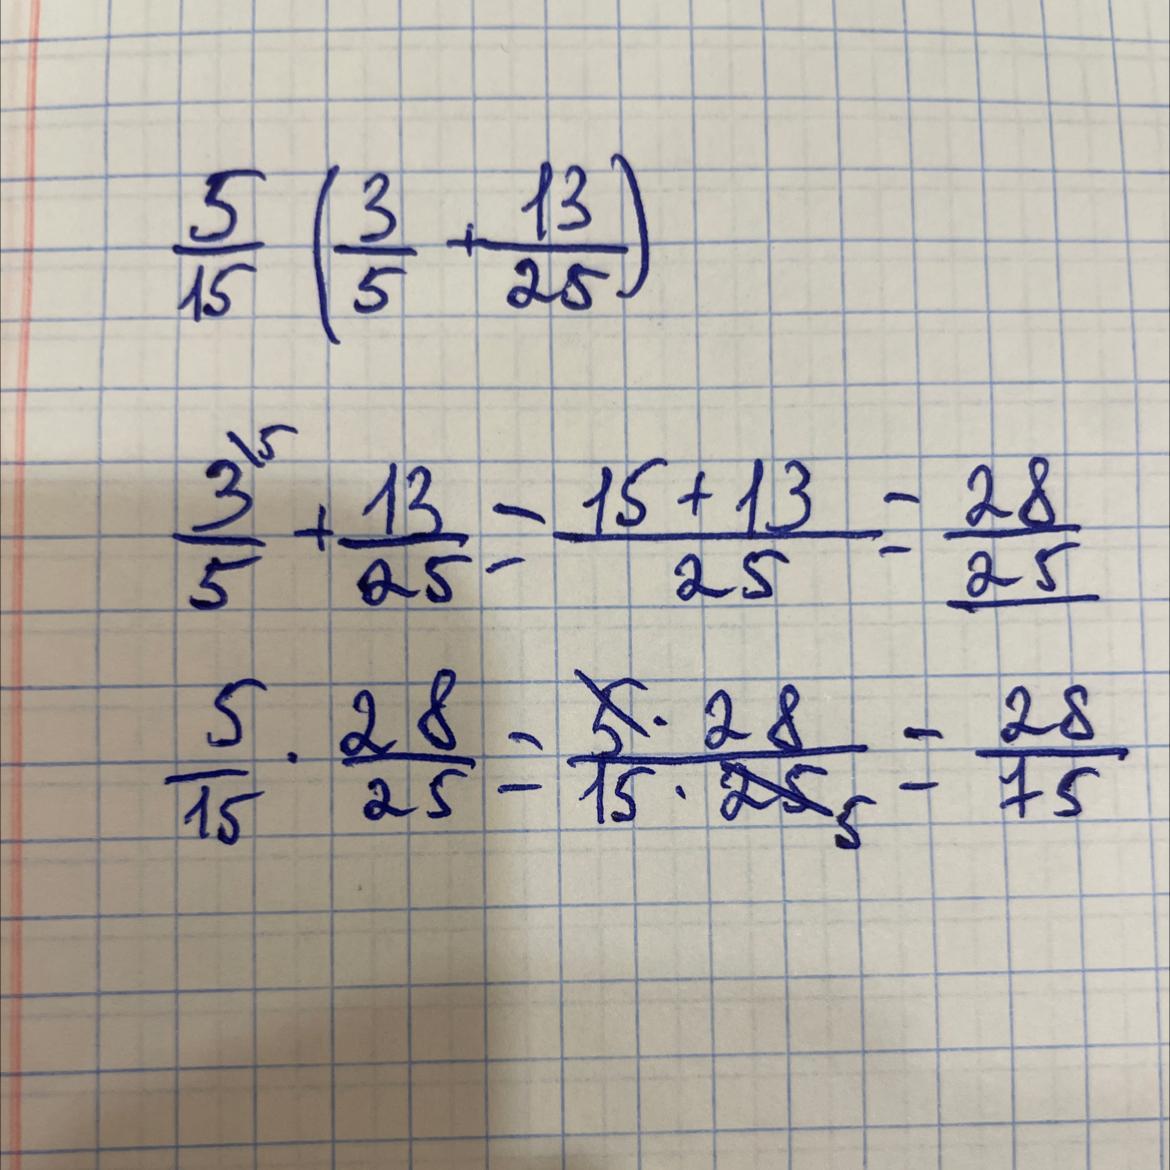 5/15 (3/5 + 13/25)
3\5/5 + 13/25 = 15+13/25 = 28/25
5/15 · 28/25 = 5·28/15·25 5 = 28/75